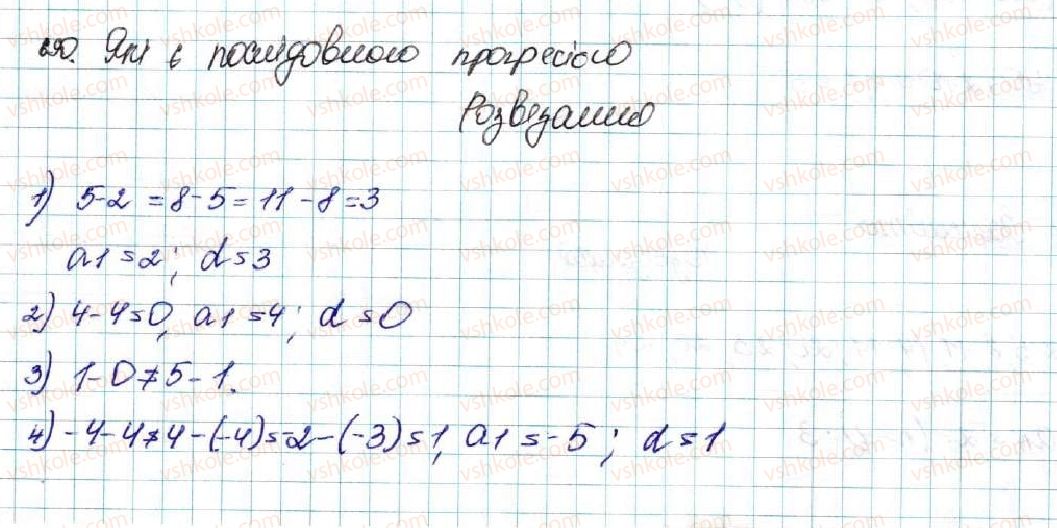 690. Які є послідовного прогресією
Розвезанню
1) 5-2 = 8-5 = 11-8 = 3
a1 = 2; d = 3
2) 4-4=0, a1 = 4; d = 0
3) 1-0≠5-1.
4) -4-4≠4-(-4)=-2-(-3)=1, a1 = -5; d = 1